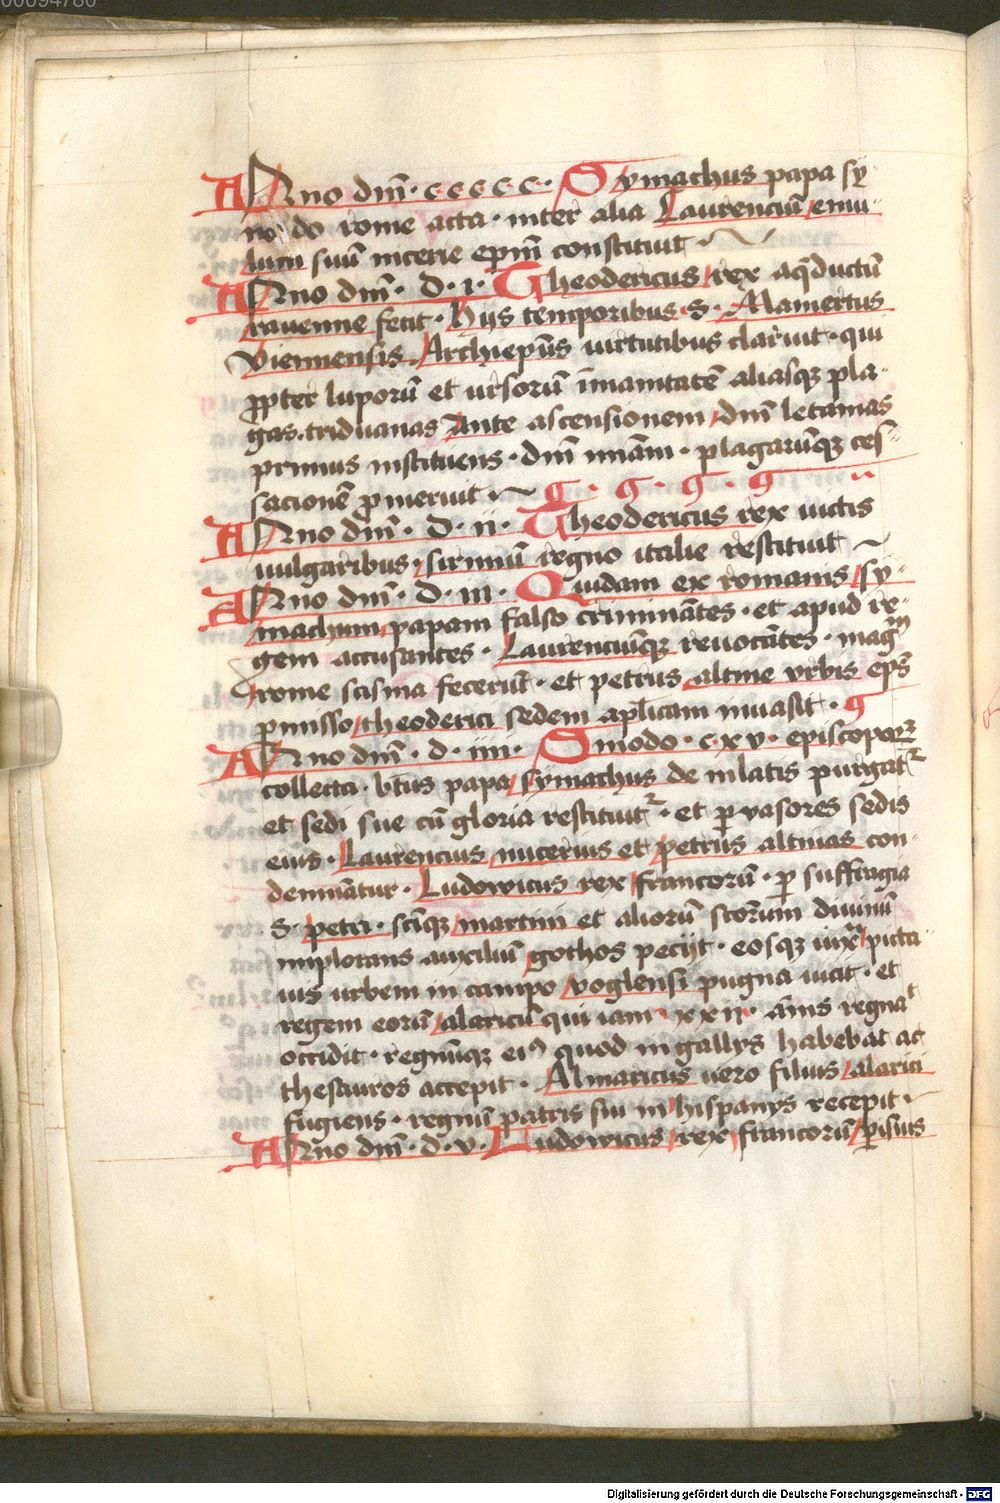 00094780
Anno dm̄· c c c c c· Symachus papa sy-
no do rome acta· inter alia Laurenciū emu-
lum suū nicerie epm̄ constituit·
Anno dm̄· D· I· Theodericus rex aq̄ductū
rauenne fecit· Hijs temporibus S· Mamertus
Viennensis Archiepūs uirtutibus claruit· qui
ꝓpter luporū et ursorū īmanitatē aliasqꝫ pla-
gas· triduanas Ante ascensionem dm̄ letanias
primus instituens· dm̄ misām· plagarūqꝫ ces-
sacionē promeruit·
Anno dm̄· D· ii· Theodericus rex uictis
uulgaribus· sirmiū regno italie restituit
Anno dm̄· D· iii· Quidam ex romanis sy-
machum papam falso criminātes· et apud re-
gem accusantes· Laurenciūqꝫ reuocātes· magm̄
rome scisma fecerūt· et petrus altine urbis ep̄s
pmisso theoderici sedem aplicam inuasit·
Anno dm̄· d· iiii· Sinodo· c x v· episcoporꝫ
collecta· btūs papa symachus de inlatis purgatᷣ
et sedi sue cū gloria restituitᷣ· et ꝑuasores sedis
eius· Laurencius nucerius et petrus altinas con-
demnātur· Ludowicus rex francorū· ꝑ suffragia
S· petri· scīqꝫ martini et aliorū scōrum diuinū
implorans auxiliū gothos peciit· eosqꝫ iuxᵃ picta-
uis urbem in campo voglensi pugna uicit· et
regem eorū alaricū qui iam x x ii· annis regnaᵗ
occidit· regnūqꝫ eiꝰ quod in gallijs habebat ac
thesauros accepit· Almaricus uero filius alarici
fugiens· regnū patris sui in hispanijs recepit·
Anno dm̄· d· v· Ludowicus rex francorū ꝑisius
Digitalisierung gefördert durch die Deutsche Forschungsgemeinschaft - DFG